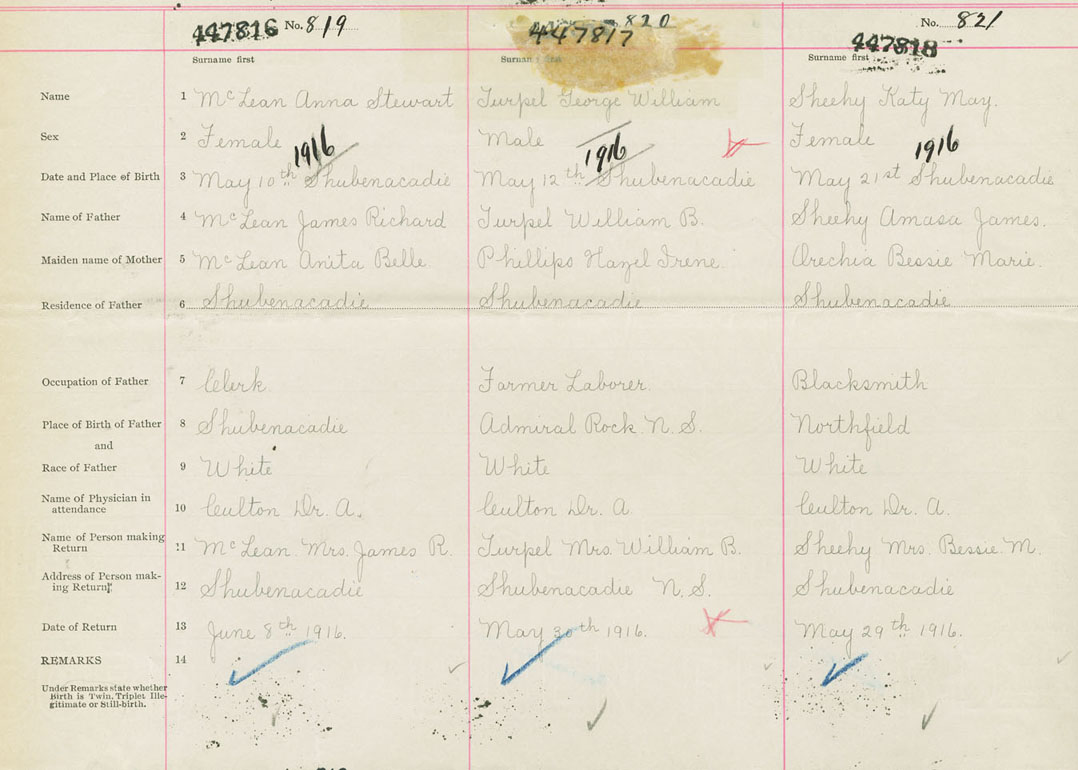 447816 No. 819 447817 820 447818 No. 821
Surname first Surname first Surname first
Name 1 McLean Anna Stewart Turpel George William Sheehy Katy May.
Sex 2 Female Male Female
1916 1916 1916
Date and Place of Birth 3 May 10th Shubenacadie May 12th Shubenacadie May 21st Shubenacadie
Name of Father 4 McLean James Richard Turpel William B. Sheehy Amasa James.
Maiden name of Mother 5 McLean Anita Belle. Phillips Hazel Irene. Orechia Bessie Marie.
Residence of Father 6 Shubenacadie Shubenacadie Shubenacadie
Occupation of Father 7 Clerk Farmer Laborer. Blacksmith
Place of Birth of Father 8 Shubenacadie Admiral Rock. N. S. Northfield
and
Race of Father 9 White White White
Name of Physician in
attendance 10 Culton Dr. A. Culton Dr. A. Culton Dr. A.
Name of Person making
Return 11 McLean. Mrs. James R. Turpel Mrs. William B. Sheehy Mrs. Bessie. M.
Address of Person mak-
ing Return 12 Shubenacadie Shubenacadie N. S. Shubenacadie
Date of Return 13 June 8th 1916. May 30th 1916. May 29th 1916.
REMARKS 14
Under Remarks state whether
Birth is Twin, Triplet Ille-
gitimate or Still-birth.